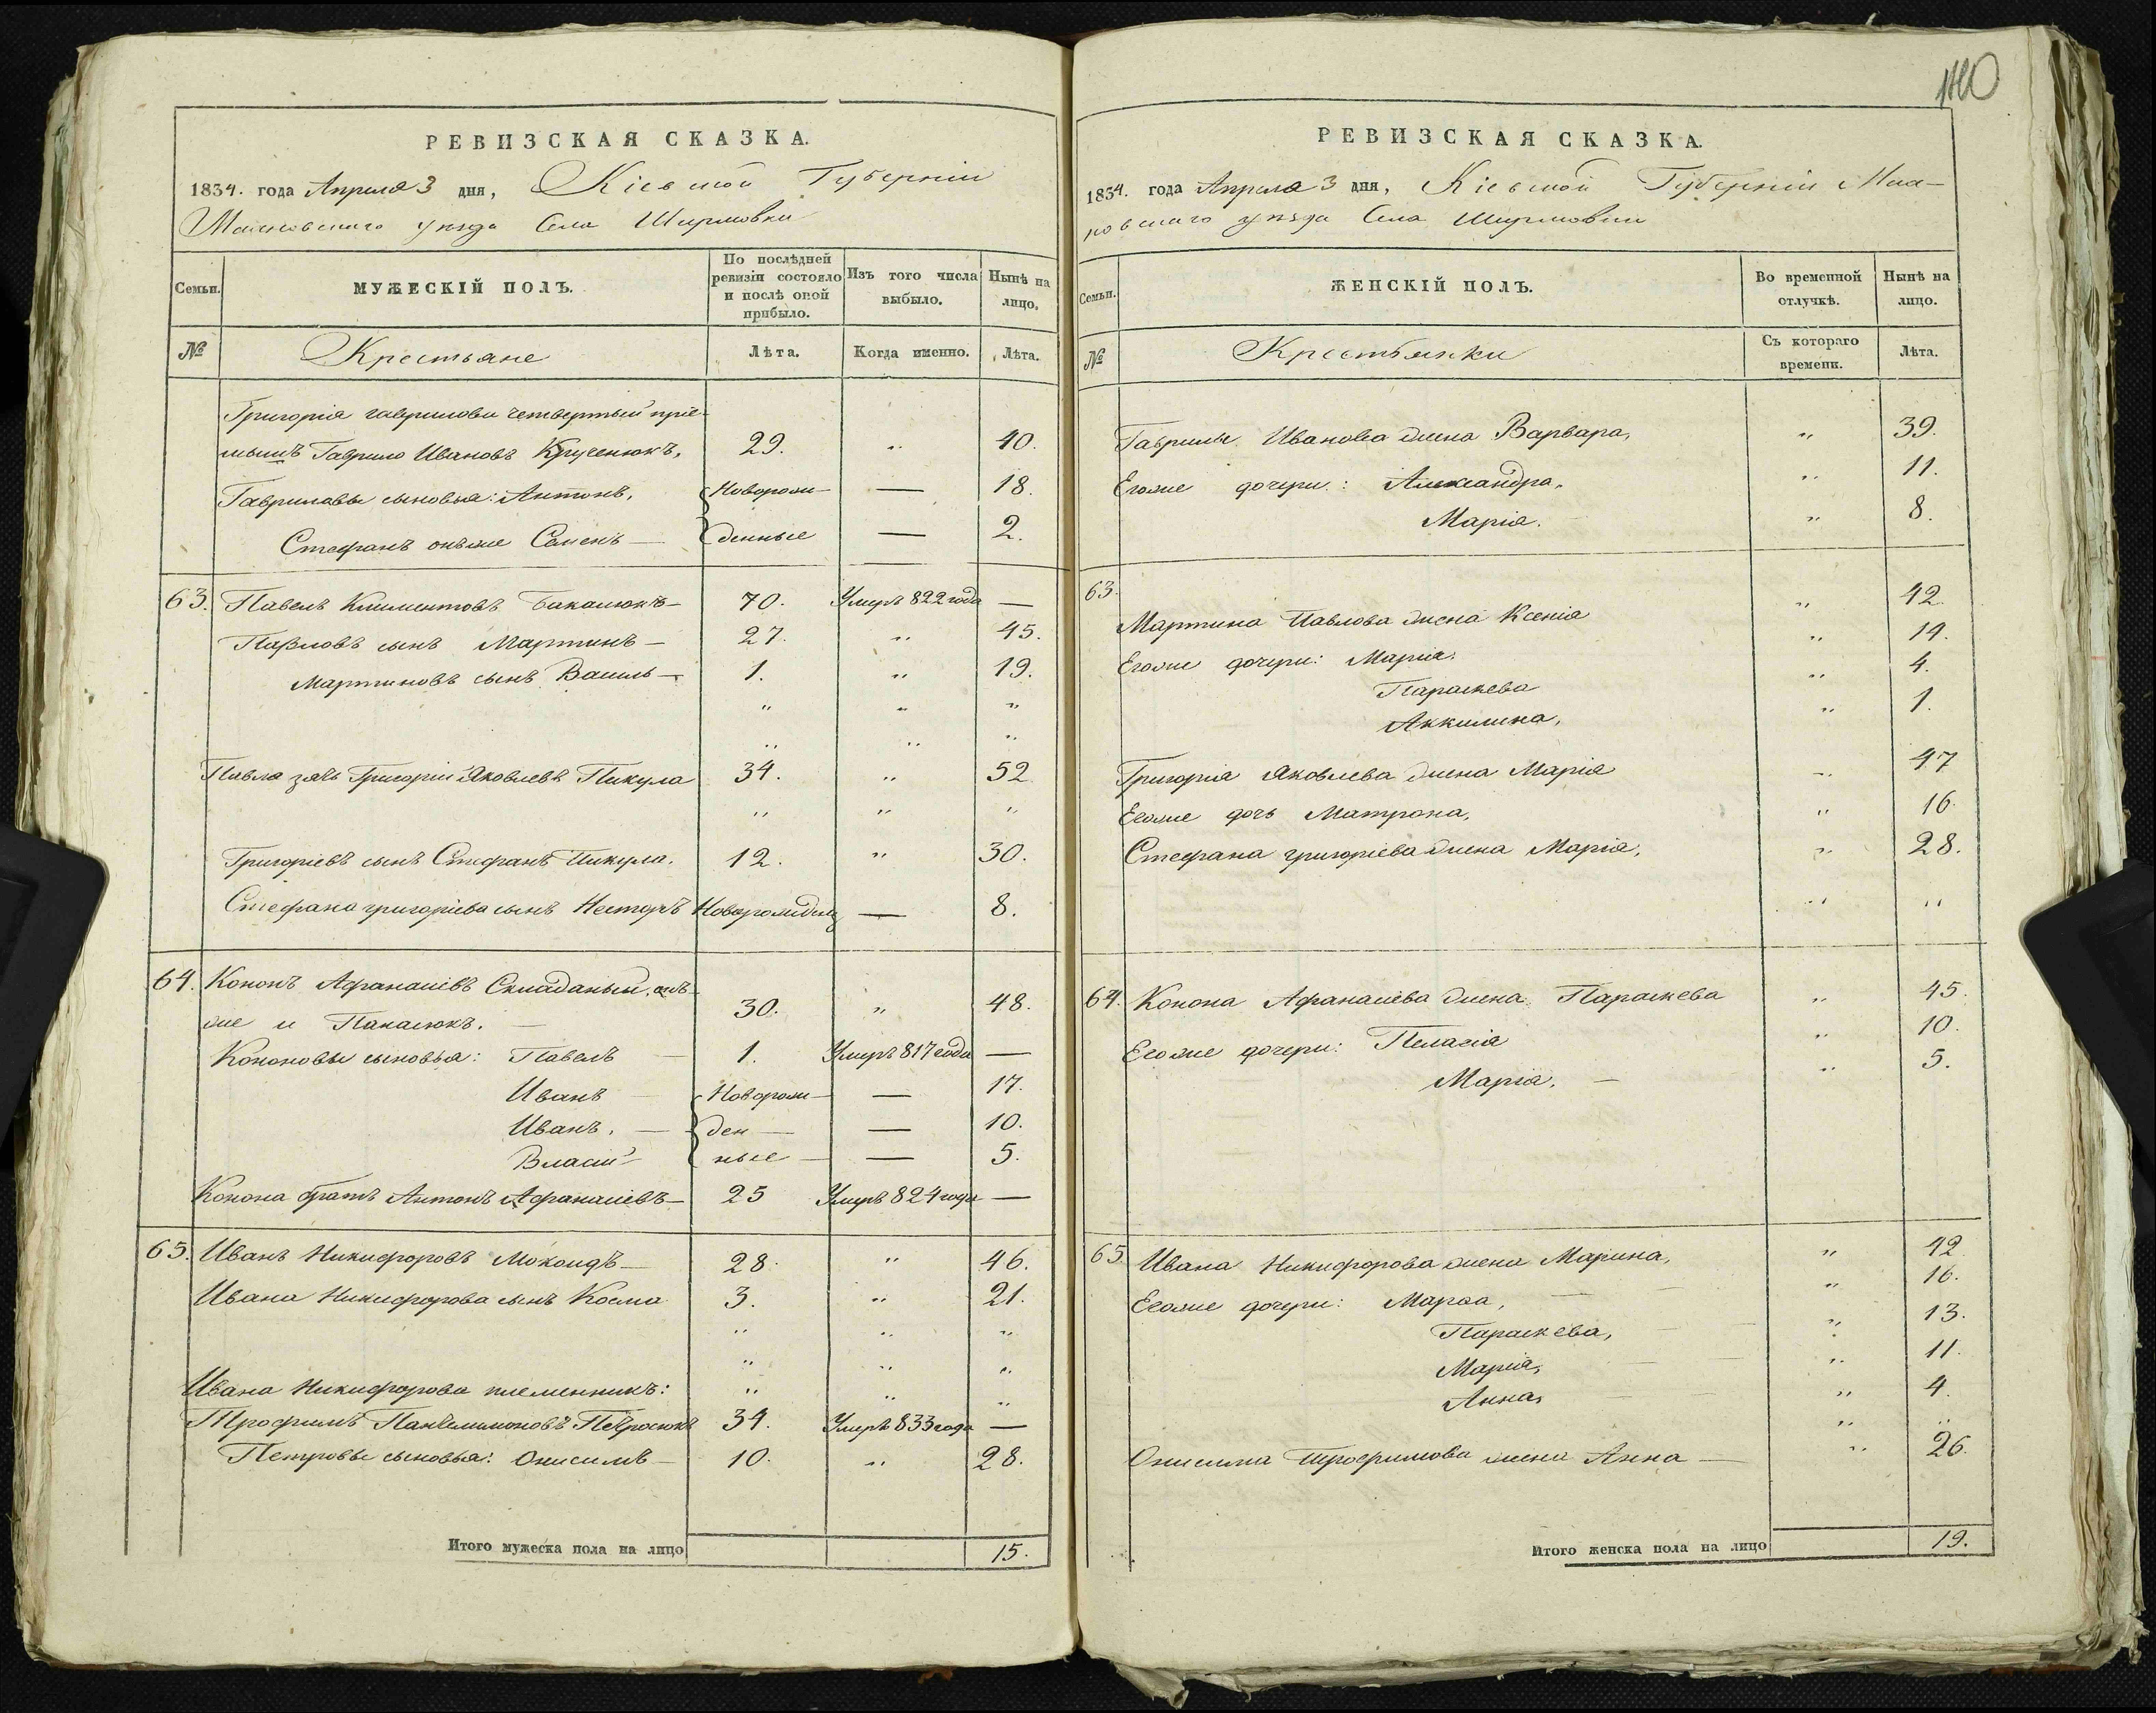 РЕВИЗСКАЯ СКАЗКА.
1834. года Апреля 3 дня, Кіевской Губерніи
Махновскаго уезда Села Ширмовки
Семьи.
МУЖЕСКІЙ ПОЛЪ.
По послѣдней ревизіи состояло и послѣ оной прибыло.
Изъ того числа выбыло.
Нынѣ на лицо.
№
Крестьяне
Лѣта.
Когда именно.
Лѣта.
Григорія гаврилова четвертый пріе-
мышъ Гаврило Ивановъ Крученюкъ, 29. „ 40.
Гавриловы сыновья: Антонъ, Новорож- — 18.
Стефанъ онъже Семенъ — денные — 2.
63. Павелъ Климентовъ Бакалюкъ — 70. Умеръ 822 года —
Павловъ сынъ Мартинъ — 27. „ 45.
Мартиновъ сынъ Василь — 1. „ 19.
„ „ „
„ „ „
Павла зять Григорій Яковлевъ Пикула 34. „ 52
„ „ „
Григоріевъ сынъ Стефанъ Пикула. 12. „ 30.
Стефана григоріева сынъ Несторъ Новорожден — 8.
64. Кононъ Афанасіевъ Складаный, онъ-
же и Панасюкъ. — 30. „ 48.
Кононовы сыновья: Павелъ — 1. Умеръ 817 года —
Иванъ — Новорож- — 17.
Иванъ. — ден — — 10.
Власій ные — — 5.
Конона братъ Антонъ Афанасіевъ — 25 Умеръ 824 года —
65. Иванъ Никифоровъ — 28. „ 46.
Ивана Никифорова сынъ Козма 3. „ 21.
„ „ „
„ „ „
Ивана Никифорова племенникъ: „ „ „
Трофимъ Пантелимоновъ Петросюкъ 34. Умеръ 833 года —
Петровы сыновья: Онисимъ — 10. „ 28.
Итого мужеска пола на лицо 15.
РЕВИЗСКАЯ СКАЗКА.
1834. года Апреля 3 дня, Кіевской Губерніи Мах-
новскаго уезда Села Ширмовки
Семьи.
ЖЕНСКІЙ ПОЛЪ.
Во временной отлучкѣ.
Нынѣ на лицо.
№
Крестьянки
Съ котораго времени.
Лѣта.
Гаврилы Иванова жена Варвара, „ 39.
Егоже дочери: Александра, „ 11.
Марія. „ 8.
63. Мартина Павлова жена Ксенія „ 42.
Егоже дочери: Марія. „ 14.
Параскева „ 4.
Аккилина, „ 1.
Григорія Яковлева жена Марія „ 47
Егоже дочь Матрона, „ 16.
Стефана григоріева жена Марія, „ 28.
„ „
64. Конона Афанасіева жена Параскева „ 45.
Егоже дочери: Пелагія „ 10.
Марія. — „ 5.
65. Ивана Никифорова жена Марина, „ 42.
Егоже дочери: „ 16.
Параскева, „ 13.
Марія, „ 11.
Анна, „ 4.
„ „
Онисима Трофимова жена Анна — „ 26.
Итого женска пола на лицо 19.